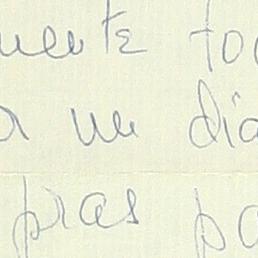 uente to
a un dia
pras pa